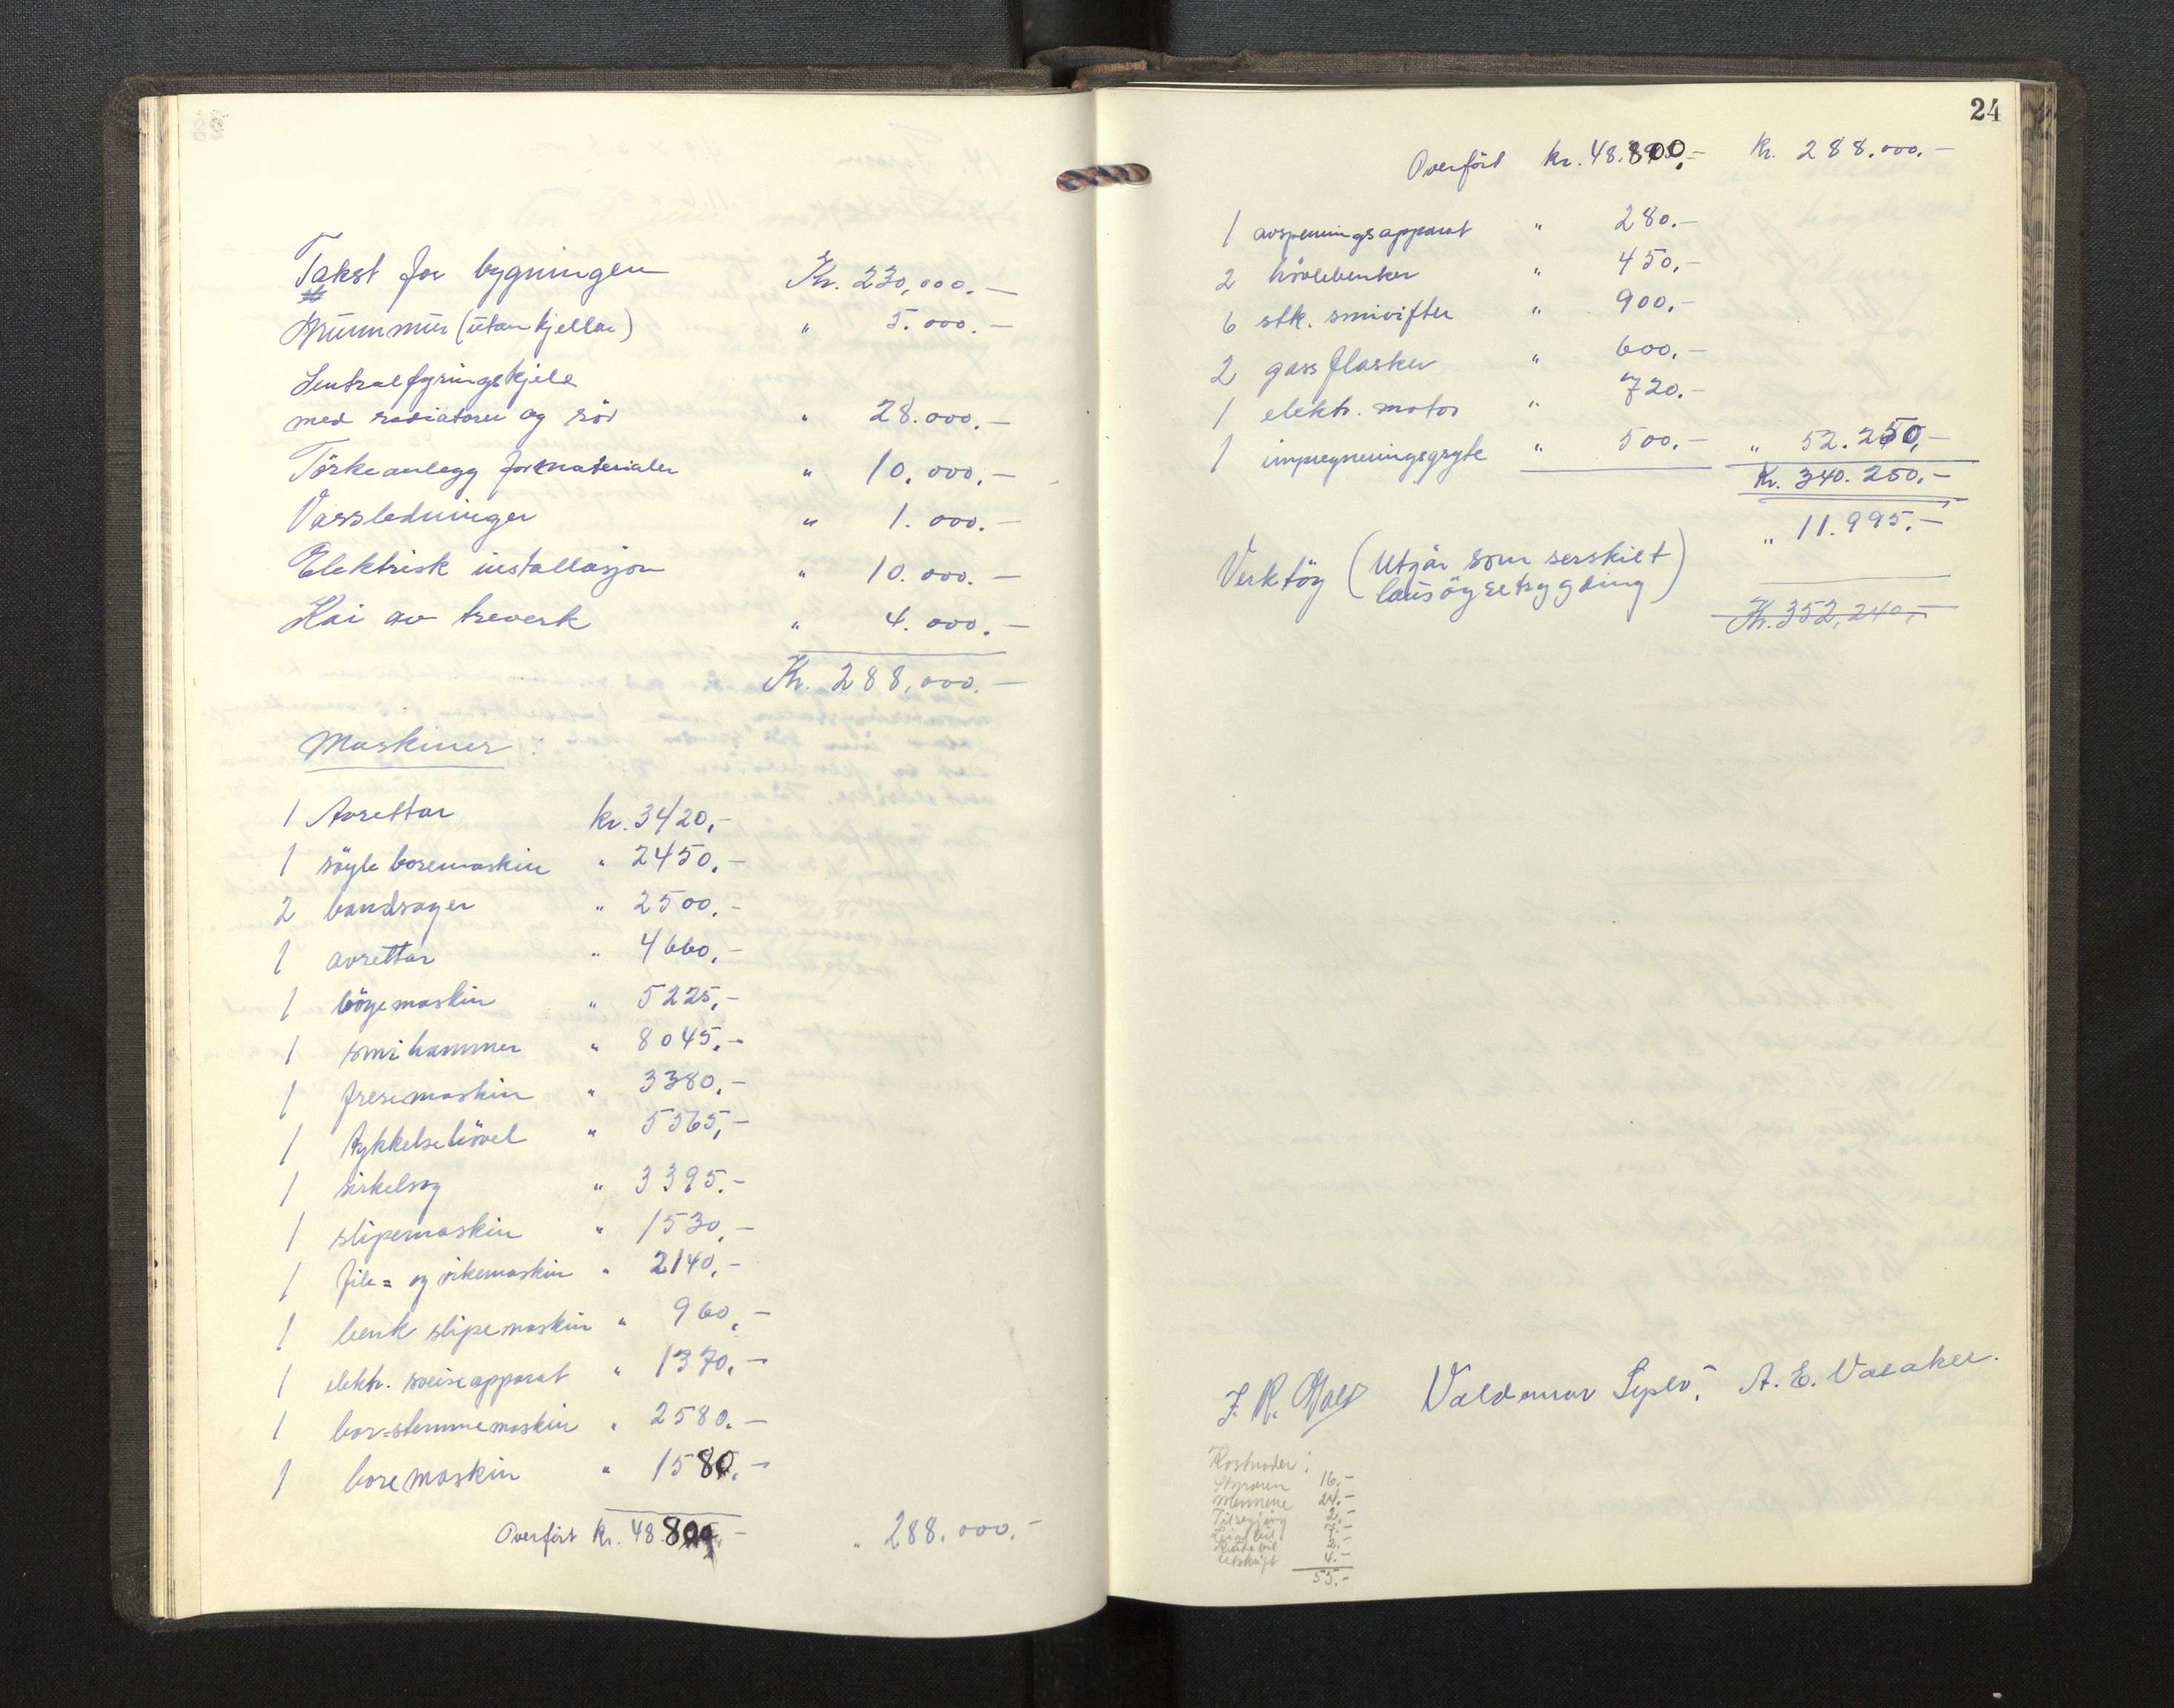 Takst for bygningen Kr. 230,000.-
Grunnmur (utan kjellar) " 5.000.-
Sentralfyringskjele
med radiatorer og rör " 28.000.-
Törkeanlegg for materialer " 10.000.-
Vassledninger " 1.000.-
Elektrisk installasjon " 10.000.-
Kai av treverk " 4.000.-
Kr. 288,000.-
Maskiner:
1 Avrettar kr. 3420,-
1 söyleboremaskin " 2450,-
2 bandsager " 2500,-
1 avrettar " 4660,-
1 böyemaskin " 5225,-
1 smihammer " 8045,-
1 fresemaskin " 3380,-
1 tykkelsehövel " 5565,-
1 sirkelsag " 3395,-
1 slipemaskin " 1530,-
1 file= og vikemaskin " 2140,-
1 benk slipemaskin " 960,-
1 elektr. sveiseapparat " 1370,-
1 bor=stemmemaskin " 2580,-
1 boremaskin " 1580,-
Overfört kr. 48.800,- " 288.000.-
24
Overfört kr. 48.800,- Kr. 288.000.-
1 avspenningsapparat " 280.-
2 hövlebenker " 450,-
6 stk. smivifter " 900,-
2 gassflasker " 600,-
1 elektr. motor " 720.-
1 impregneringsgryte " 500,- " 52.250,-
Kr. 340.250,-
" 11.995,-
Verktöy (Utgår som serskilt
lausöyretrygding)
Kr. 352,240,-
J. R. Valdemar A. E. Valaker.
Kostnader:
Styraren 16,-
Mennene 24,-
Tilsegjing 2,-
Leigebil 7,-
Rutebil 2,-
Utskrift 4,-
55,-